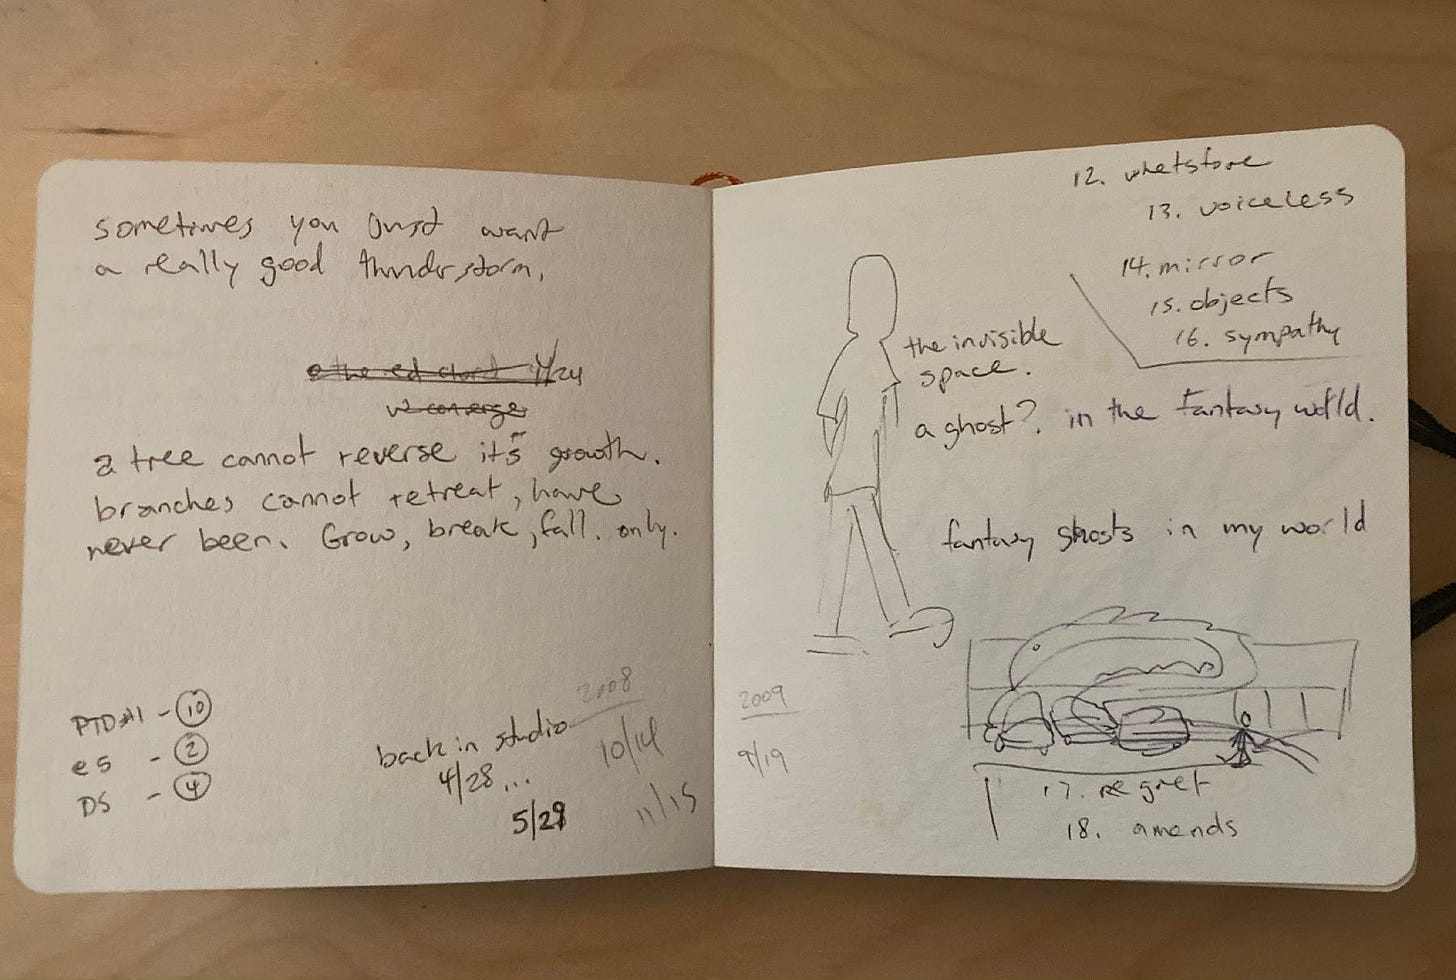 sometimes you just want
a really good thunderstorm.
4/24
we converge
a tree cannot reverse it's growth.
branches cannot retreat, have
never been. Grow, break, fall. only.
PTD#1 - 10
es - 2
DS - 4
back in studio
4/28...
5/29
2008
10/14
11/15
12. whetstone
13. voiceless
14. mirror
15. objects
16. sympathy
the invisible
space.
a ghost? in the fantasy world.
fantasy ghosts in my world
2009
9/19
17. regret
18. amends